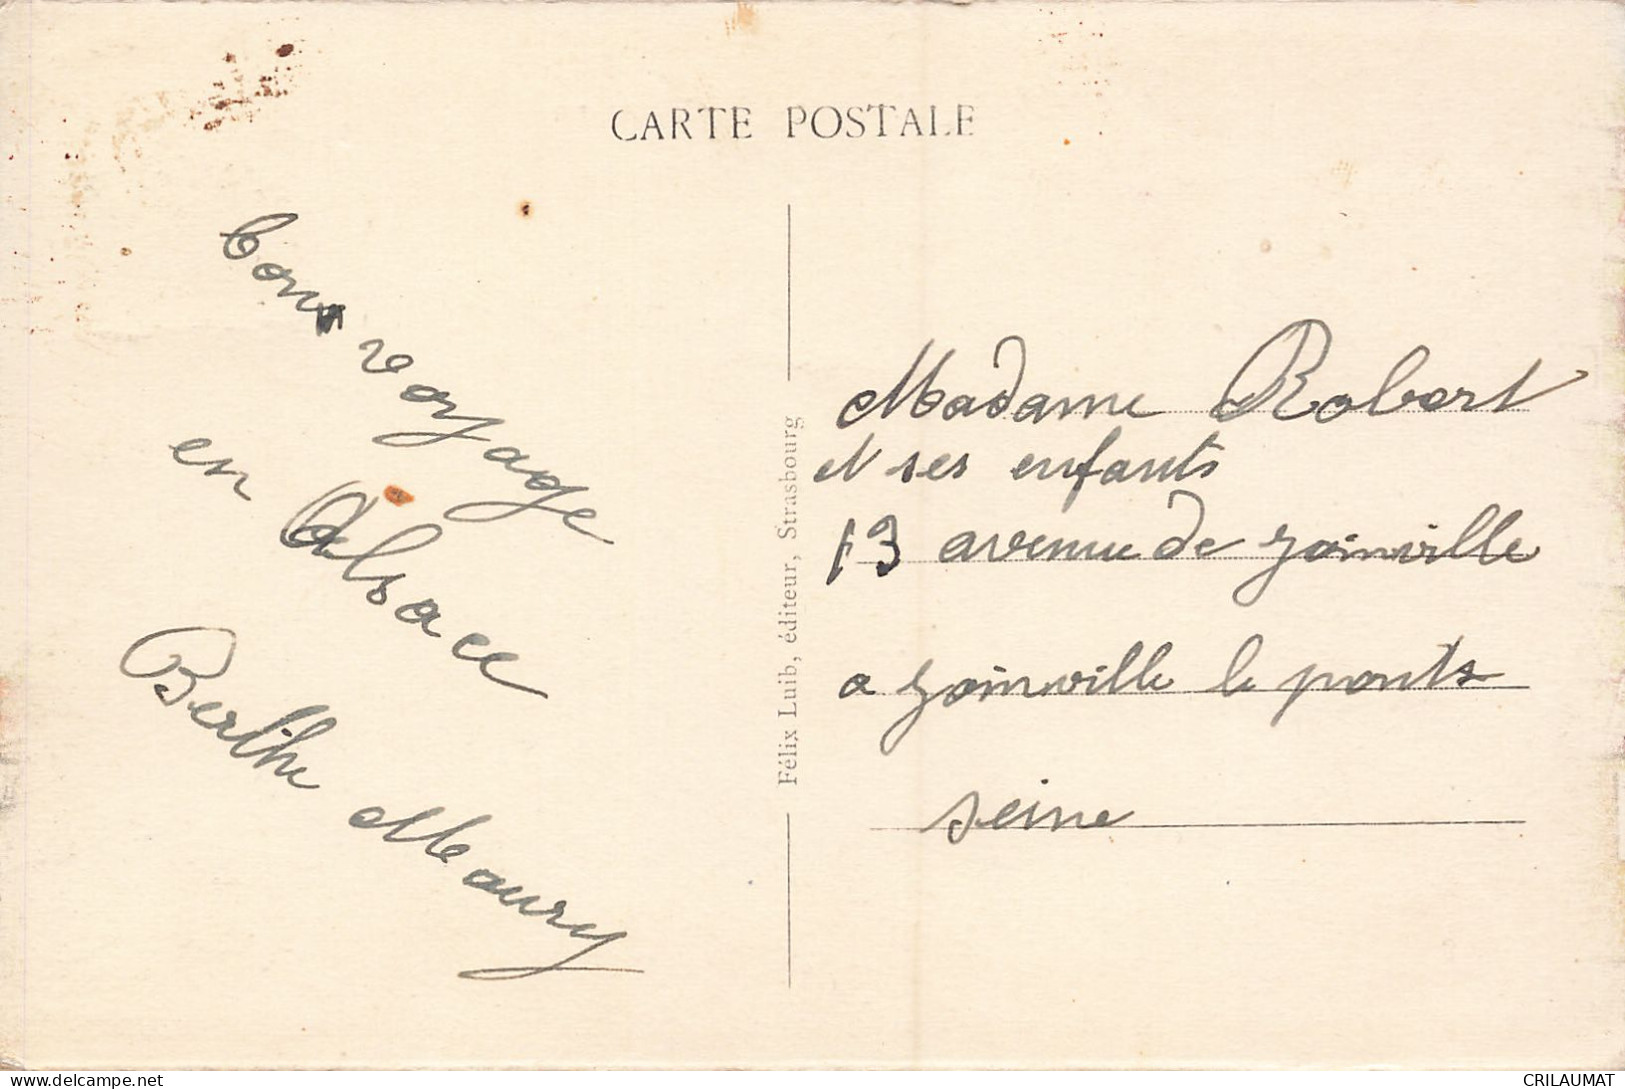 CARTE POSTALE
bon voyage
en Alsace
Berthe Maury
Félix Luib, éditeur, Strasbourg
Madame Robert
et ses enfants
13 avenue de Joinville
a Joinville le ponts
seine
delcampe.net
CRILAUMAT